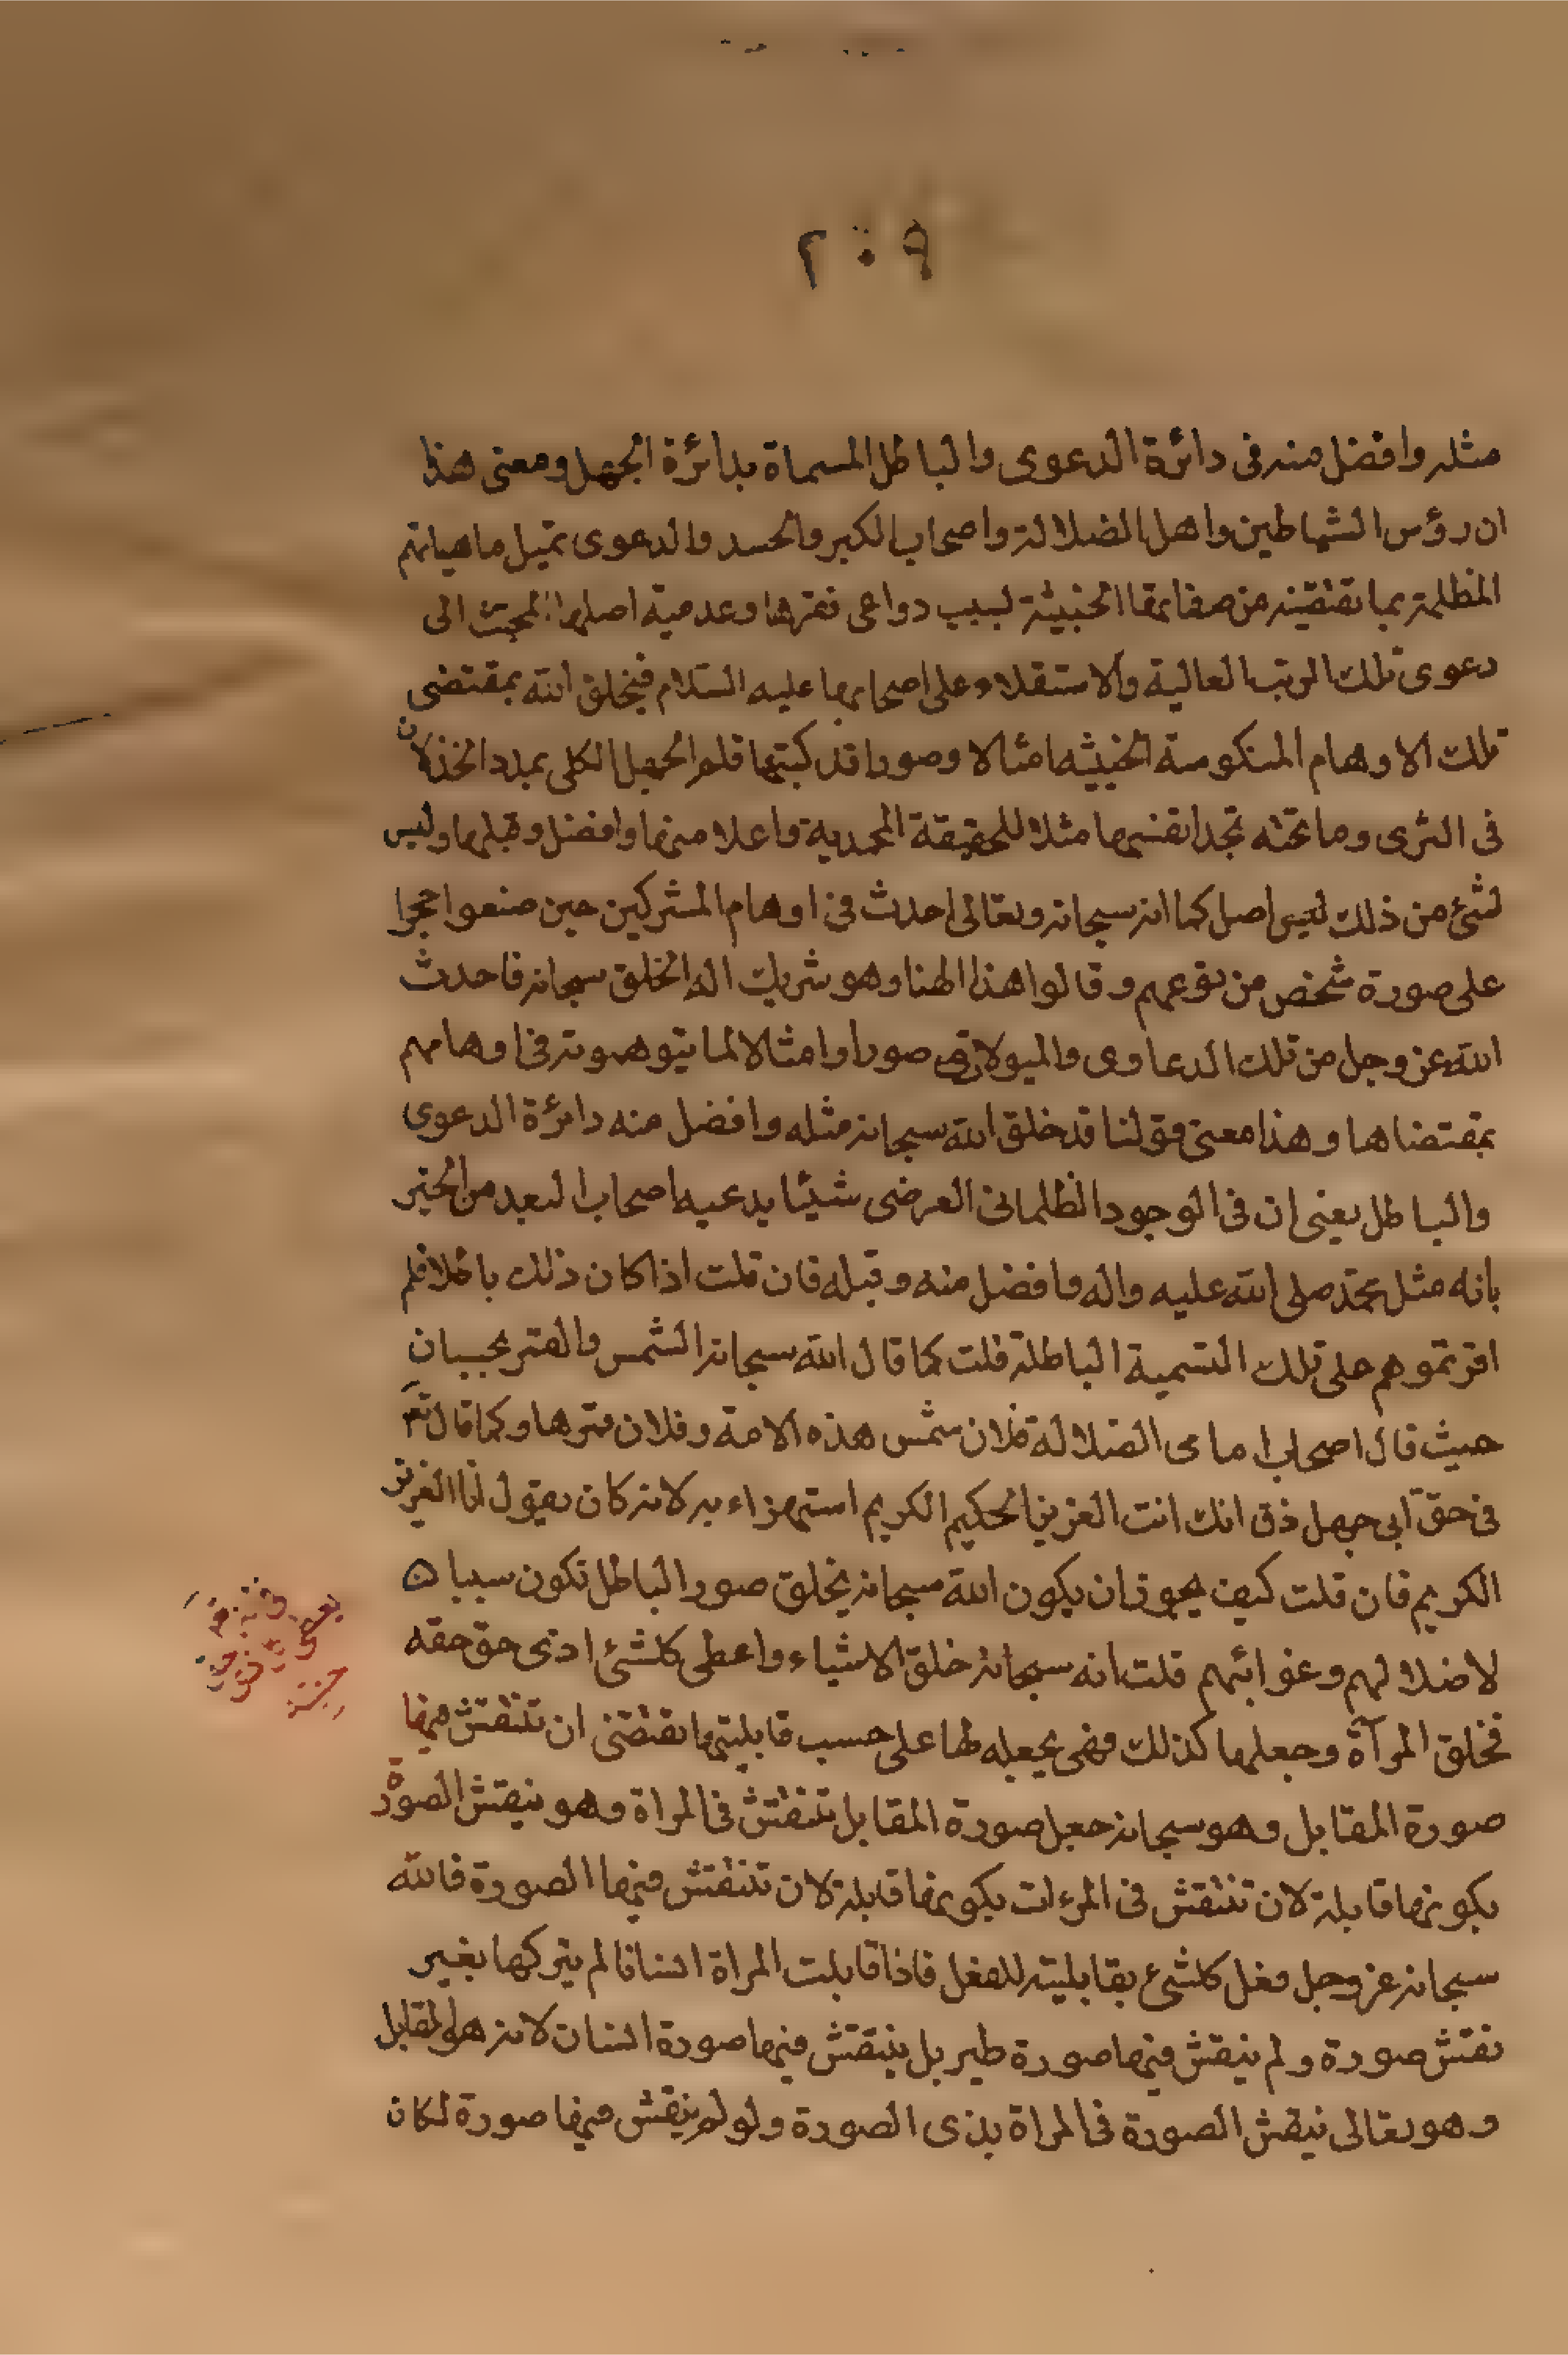 ٢٠٩
مثله وافضل منه فى دائرة الدعوى والباطل المسماة بدائرة الجهل ومعنى هذا
ان رؤس الشياطين واهل الضلالة واصحاب الكبر والحسد والدعوى تميل ماهياتهم
المظلمة بما تقتضيه من صفاتها الخبيثة لسبب دواعى فقرها وعدمية اصلها المجتث الى
دعوى تلك الرتب العالية والاستقلاء على اصحابها عليه السلام فيخلق الله بمقتضى
تلك الاوهام المنكوسة الخبيثه امثالا وصورا قد كتبتها قلم الجهل الكلى بمدد الخذلان
فى الثرى وما تحته تجد انفسها مثلا للحقيقة المحمدية واعلا منها وافضل وقبلها وليس
لشئ من ذلك ليس اصل كما انه سبحانه وتعالى احدث فى اوهام المشركين حين صنعوا حجرا
على صورة شخص من نوعهم وقالوا هذا الهنا وهو شريك اله الخلق سبحانه فاحدث
الله عز وجل من تلك الدعاوى والميولات صورا وامثالا لما يتوهمونه فى اوهامهم
بمقتضاها وهذا معنى قولنا قد خلق الله سبحانه مثله وافضل منه دائرة الدعوى
والباطل يعنى ان فى الوجود الظلمانى العرضى شيئا يدعيه اصحاب البعد من الخير
بانه مثل محمد صلى الله عليه واله وافضل منه وقبله فان قلت اذا كان ذلك باطلا فلم
اقرتموهم على تلك التسمية الباطلة قلت كما قال الله سبحانه الشمس والقمر بحسبان
حيث قال اصحاب الضلالة فلان شمس هذه الامة وفلان قمرها وكما قال تع
فى حق ابى جهل ذق انك انت العزيز الحكيم الكريم استهزاء به لانه كان يقول انا العزيز
الكريم فان قلت كيف يجوز ان يكون الله سبحانه يخلق صور الباطل تكون سببا
لاضلالهم وغوائهم قلت انه سبحانه خلق الاشياء واعطى كلشئ ادى حق حقه
فخلق المرآة وجعلها كذلك فهى بجعله لها على حسب قابليتها تقتضى ان تنتقش فيها
صورة المقابل وهو سبحانه جعل صورة المقابل تنتقش فى المراة وهو ينقش الصورة
بكونها قابلة لان تنتقش فى المرءات بكونها قابلة لان تنتقش فيها الصورة فالله
سبحانه عز وجل فعل كلشئ بقابليته للفعل فاذا قابلت المراة انسانا لم يتركها بغير
نقش صورة ولم ينقش فيها صورة طير بل ينقش فيها صورة انسان لانه هو المقابل
وهو تعالى ينقش الصورة فى المراة بذى الصورة ولو لم ينقش فيها صورة لكان